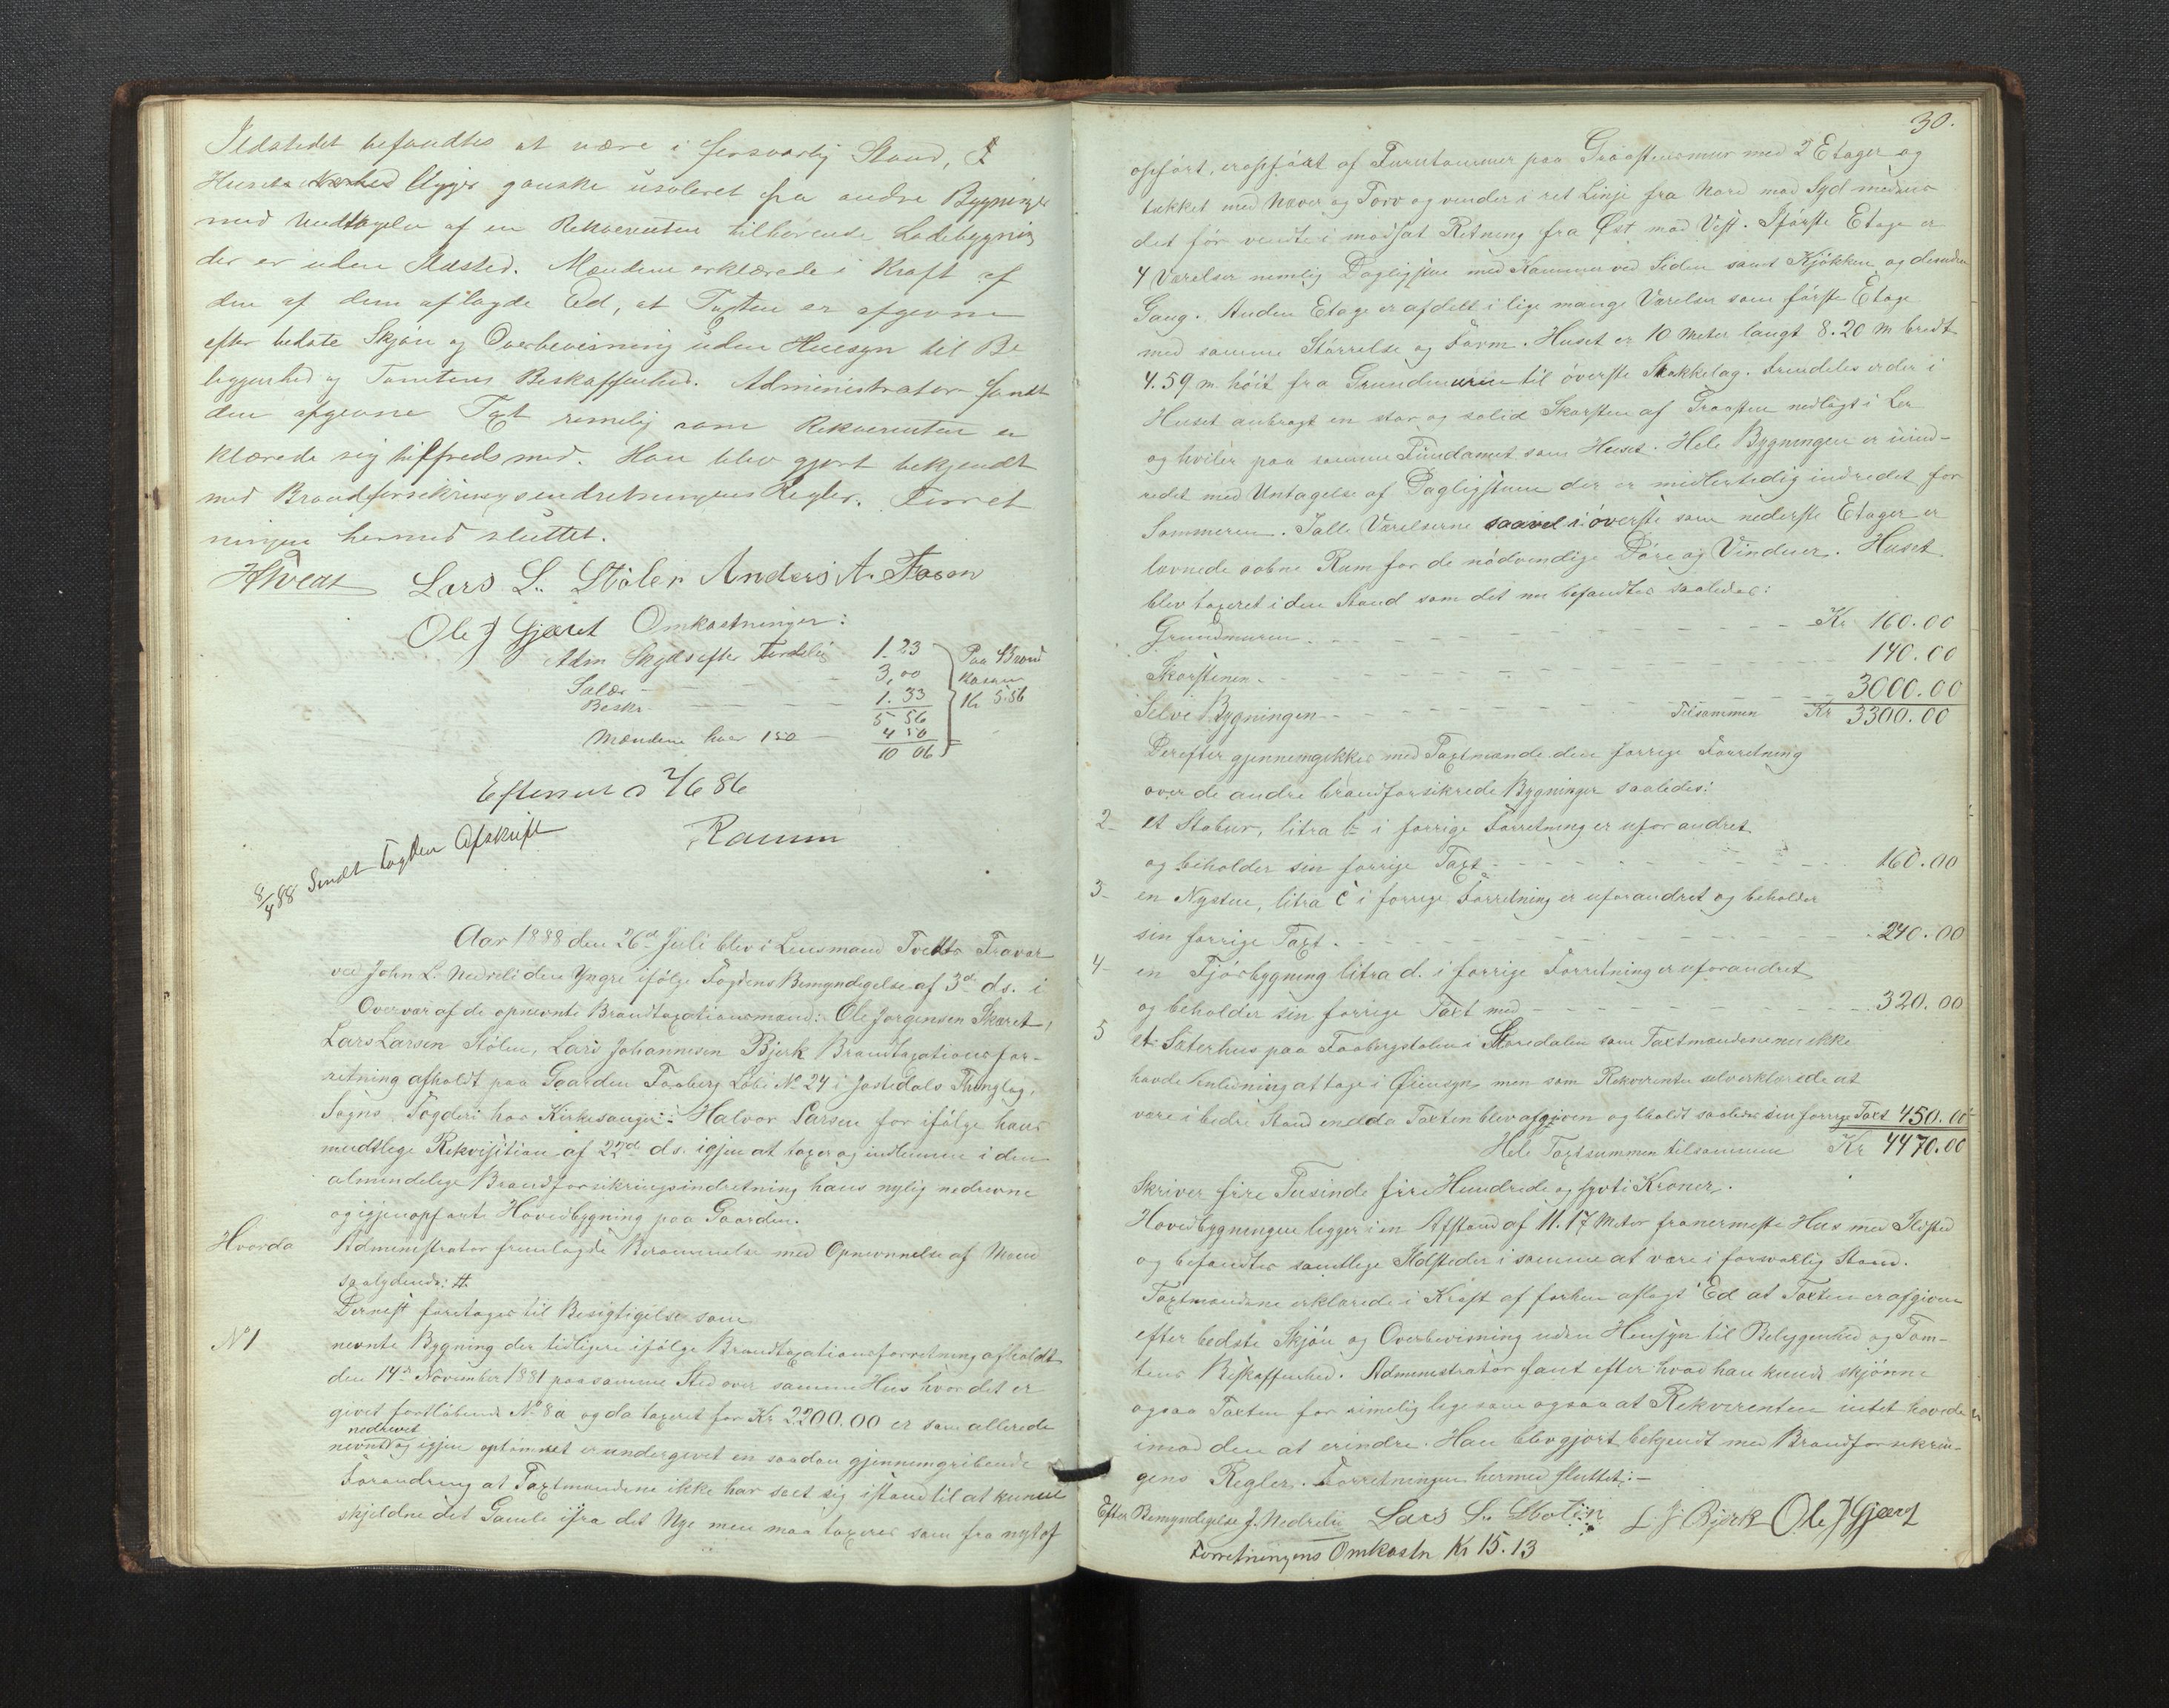 Ildstedet befandtes at være i forsvarlig Stand, &
Husets ligger ganske isoleret fra andre Bygninger
med Undtagelse af en Rekverenten tilhørende Ladebygning
der er uden Ildsted. Mændene erklærede i Kraft af
den af dem aflagde Ed, at Taxten er afgivne
efter bedste Skjøn og Overbevisning uden Hensyn til Be
liggenhed og Tomtens Beskaffenhed. Administrator fandt
den afgivne Taxt rimelig som Rekverenten er
klærede sig tilfreds med. Han blev gjort bekjendt
med Brandforsikringsindretningens Regler. Forret
ningen hermed sluttet.
HTveat Lars L. Stölen Anders A. Faaen
Ole J Gjæret Omkostninger:
Adm Skyds efter Fordeling 1.23
Salær 3,00
Beskr. 1.33
5 56
Mændene hver 150 4 50
10 06
Paa Brand
kassen
Kr 5.56
Efterseet d 2/6 86
Raum
8/4 88 Sendt Fogden Afskrift
Aar 1888 den 26d Juli blev i Lensmand Tvetts Fravær
ved John L. Nedreli den Yngre ifölge Fogdens Bemyndigelse af 3d ds. i
Overvær af de opnevnte Brandtaxationsmænd: Ole Jørgensen Skaret,
Lars Larsen Stölen, Lars Johannesen Bjerk Brandtaxationsfor-
retning afholdt paa Gaarden Faaberg Löbe No 24 i Jostedals Thinglag,
Sogns Fogderi hos Kirkesanger: Halvor Larsen for ifölge hans
mundtlige Rekvisition af 22d ds. igjen at taxere og indlemme i den
almindelige Brandforsikringsindretning hans nylig nedrevne
og igjenopført Hovedbygning paa Gaarden.
Hvorda Administrator fremlagde Berammelse med Opnevnelse af Mænd
saalydende: #.
Dernest foretages til Besigtigelse som
No 1 nevnte Bygning der tidligere ifölge Brandtaxationsforretning afholdt
den 14de November 1881 paa samme Sted over samme Hus hvor det er
givet fortløbende No 8a og da taxeret for Kr 2200.00 er som allerede
nedrevet
nevnt og igjen optömret er undergivet en saadan gjennemgribende
Forandring at Taxtmændene ikke har seet sig istand til at kunne
skjeldne det Gamle ifra det Nye men maa taxeres som fra nyt af
30.
opført, er opført af Furutømmer paa Graastensmur med 2 Etager og
tækket med Næver og Torv og vender i ret Linje fra Nord mod Syd medens
det før vendte i modsat Retning fra Øst mod Vest. I første Etage er
4 Værelser nemlig Dagligstue med Kammer ved Siden samt Kjøkken og desuden
Gang. Anden Etage er afdelt i lige mange Værelser som første Etage
med samme Størrelse og Form. Huset er 10 Meter langt 8.20 m bredt
4.59 m höit fra Grundmuren til överste Stokkelag. Fremdeles er der i
Huset anbragt en stor og solid Skorsten af Graasten nedlagt i Ler
og hviler paa samme Fundament som Huset. Hele Bygningen er uind-
redet med Untagelse af Dagligstuen der er midlertidig indredet for
Sommeren. I alle Værelserne saavel i överste som nederste Etager er
levnede aabne Rum for de nødvendige Døre og Vinduer. Huset
blev taxeret i den Stand som det nu befandtes saaledes:
Grundmuren Kr 160.00
Skorstenen 140.00
Selve Bygningen 3000.00
Tilsammen Kr 3300.00
Derefter gjennemgikkes med Taxtmændene den forrige Forretning
over de andre brandforsikrede Bygninger saaledes:
2 et Stabur, litra b i forrige Forretning er uforandret
og beholder sin forrige Taxt 160.00
3 en Nystue, litra c i forrige Forretning er uforandret og beholder
sin forrige Taxt 240.00
4 en Fjøsbygning litra d. i forrige Forretning er uforandret
og beholder sin forrige Taxt med 320.00
5 et Sæterhus paa Faabergstølen i Storedalen som Taxtmændene nu ikke
havde Anledning at tage i Øiensyn, men som Rekverenten selv erklærede at
være i bedre Stand end da Taxten blev afgiven og beholdt saaledes sin forrige Taxt 450.00
Hele Taxtsummen tilsammen Kr 4470.00
Skriver fire Tusinde fire Hundrede og sytti Kroner.
Hovedbygningen ligger i en Afstand af 11.17 Meter fra nermeste Hus med Ildsted
og befandtes samtlige Ildsteder i samme at være i forsvarlig Stand.
Taxtmændene erklærede i Kraft af forhen aflagt Ed at Taxten er afgiven
efter bedste Skjön og Overbevisning uden Hensyn til Beliggenhed og Tom-
tens Beskaffenhed. Administrator fant efter hvad han kunde skjönne
ogsaa Taxten for rimelig lige som ogsaa at Rekverenten intet havde
imod den at erindre. Han blev gjort bekjendt med Brandforsikrin-
gens Regler. Forretningen hermed sluttet:-
Efter Bemyndigelse J. Nedreli Lars L. Stölen L J Bjerk Ole J Gjært
Forretningens Omkostn Kr 15.13